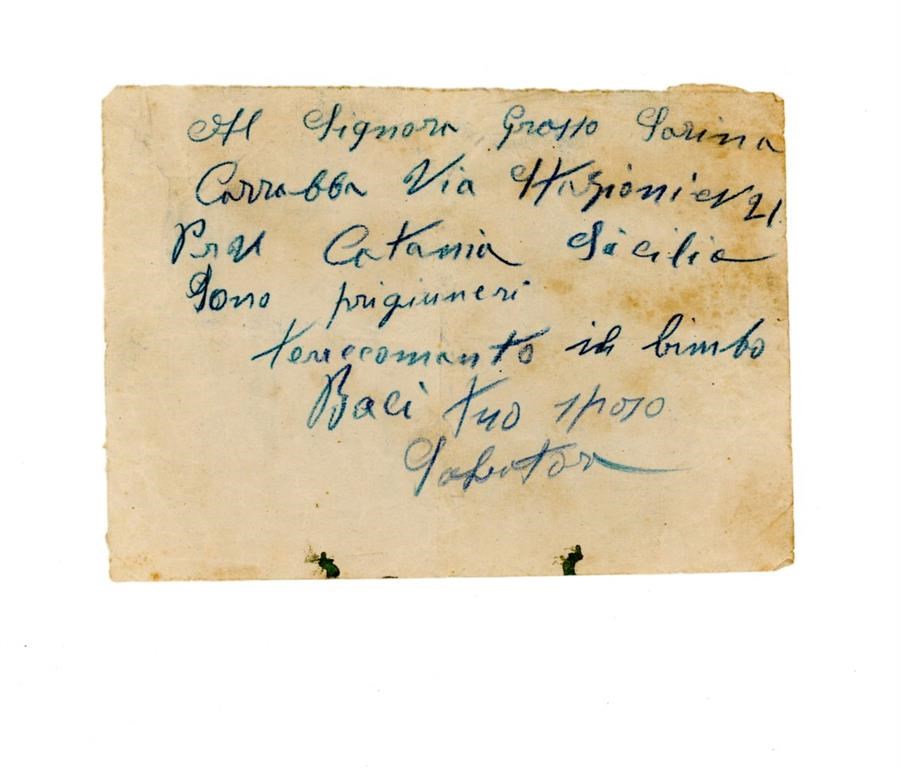 Al Signora Grasso Sarina
Carrabba Via Stazioni N 21
Catania Sicilia
Sono prigiuneri
tereccomanto ill bimbo
Baci tuo sposo
Salvator